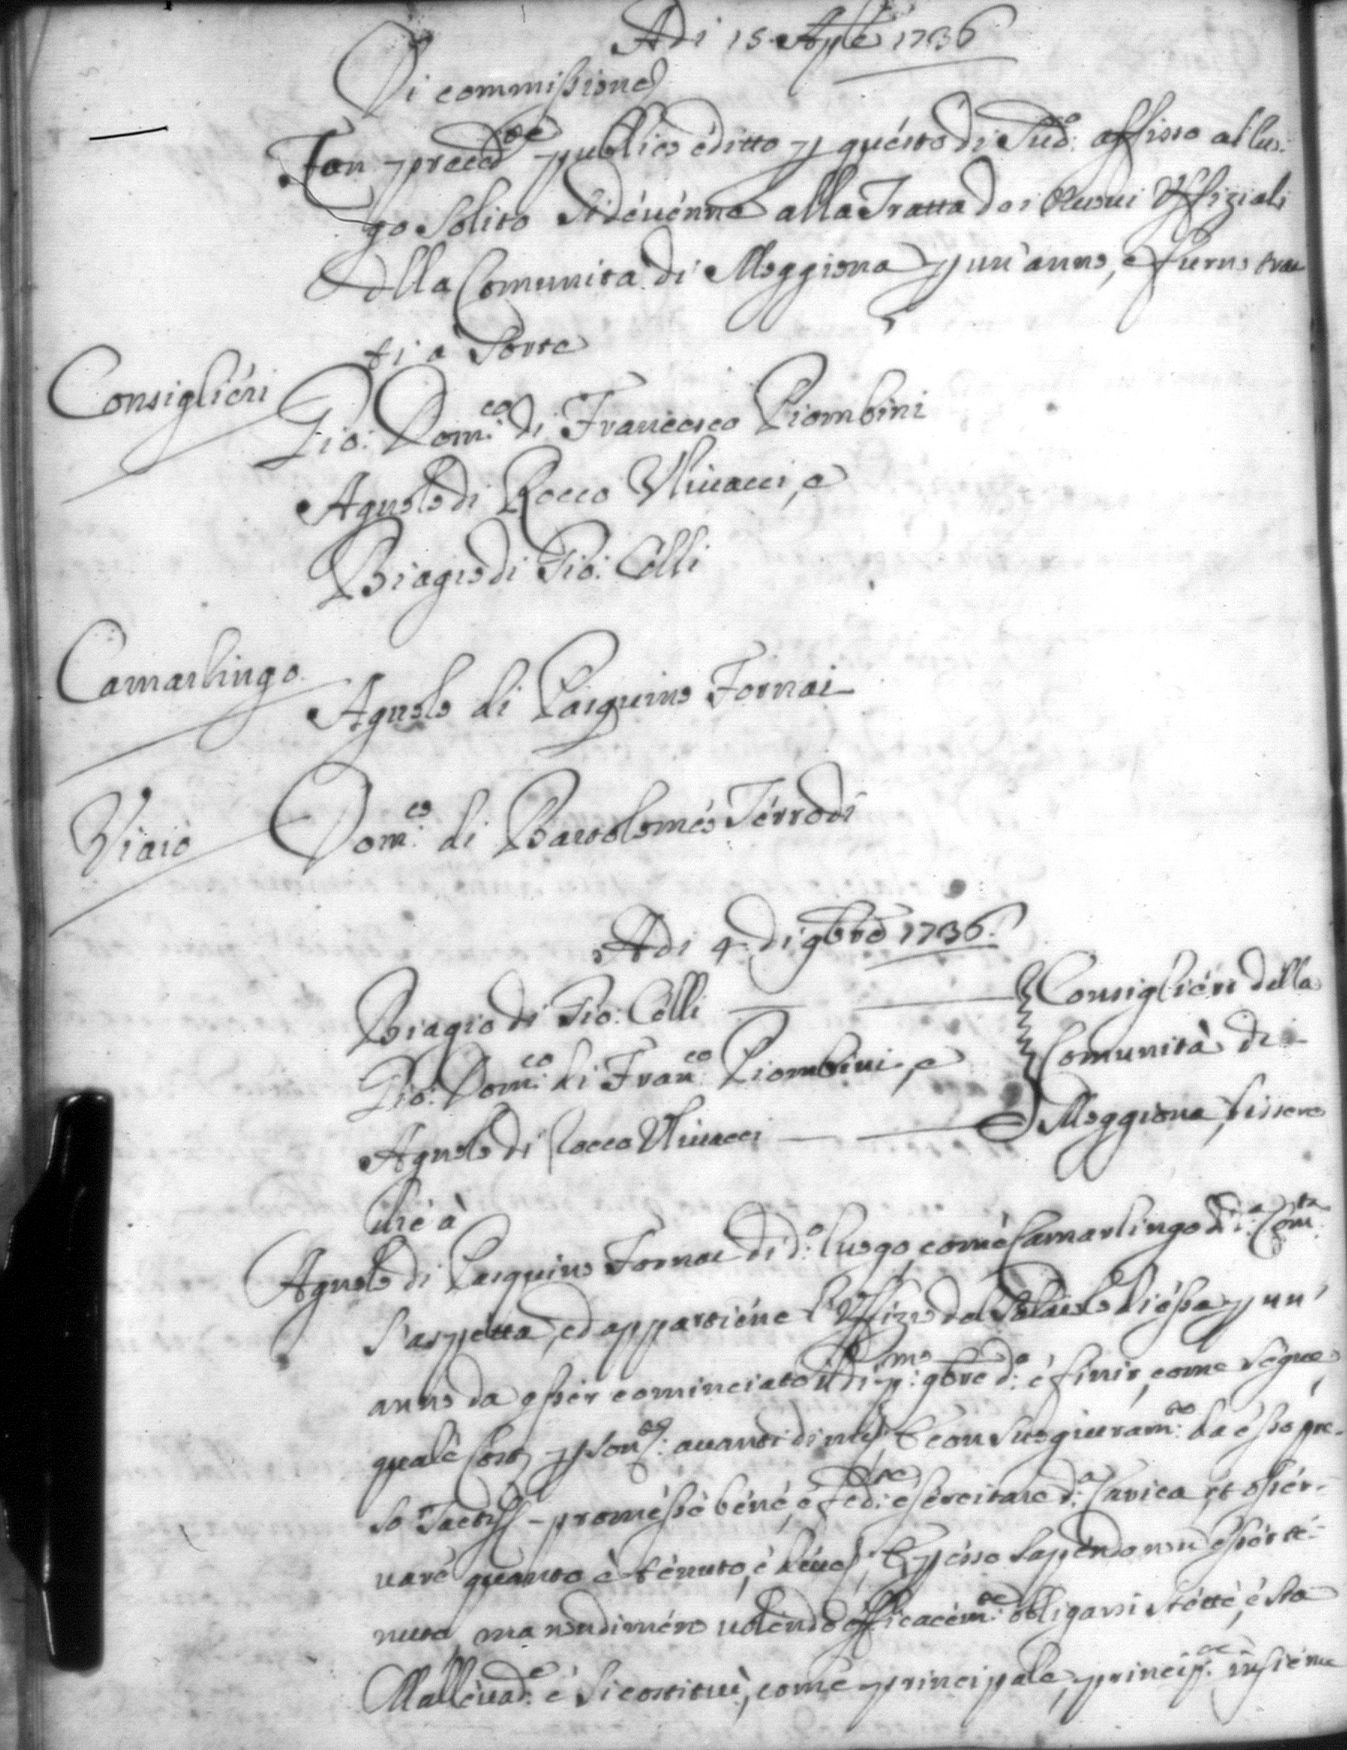 Adi 15 Aple 1736
Di commissione
Con preced.te publico editto p questo di Sud.o affisso al luo-
go solito si devenne alla Tratta dei nuovi Uffiziali
della Comunità di Moggiona p un'anno, e furno trat
ti à Sorte
Consiglieri
Gio: Dom.co di Francesco Piombini
Agnolo di Rocco Ulivacci, e
Biagio di Gio: Celli
Camarlingo
Agnolo di Pasquino Fornai
Viaio
Dom.co di Bartolomeo Ferrodi
Adi 4 di 9bre 1736
Biagio di Gio: Celli — Consiglieri della
Gio: Dom.co di Fran.co Piombini, e Comunità di
Agnolo di Rocco Ulivacci — Moggiona, dissero
Agnolo di Pasquino Fornai di d.o luogo, come Camarlingo di d.a Com.ta
S'aspetta, ed appartiene l'Uffizio del di essa p un'
anno da esser cominciato il dì p.mo 9bre d.o e finir, come segue,
quale avanti di me, e con suo giuram.to da esso pre-
so promesse bene, e esercitare d.a Carica, et osser-
vare quanto è tenuto, e deve, sapendo non esser te-
nuto, ma nondimeno volendo efficacem.te obligarsi stette, e sta
Mallevad.e e si costituì, come principale, insieme